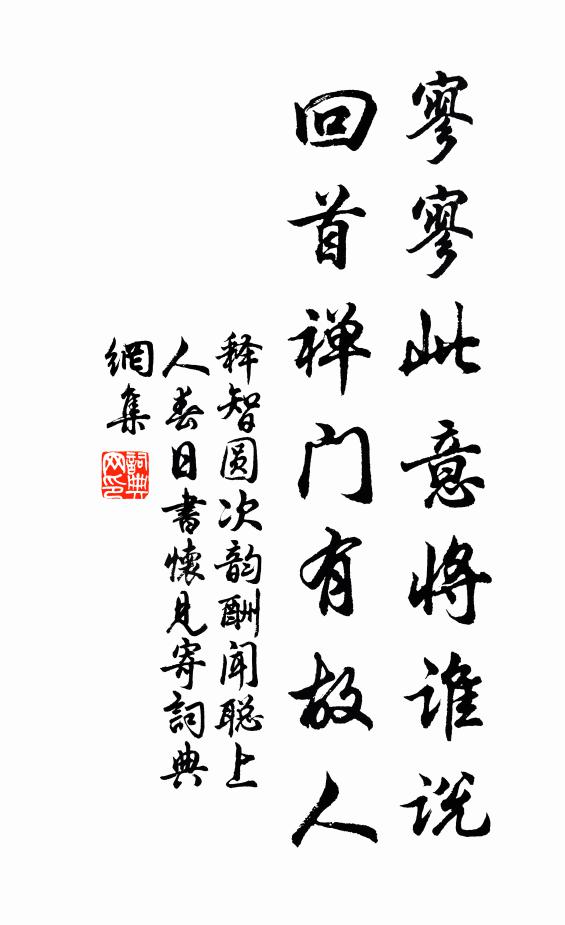 寥寥此意将谁说
回首禅门有故人
释智圆次韵酬闻聪上
人春日书懷见寄詞典
網集
詞典
网印